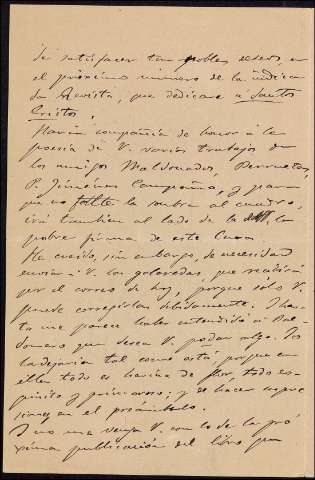 de satisfacer tan nobles deseos, en
el próximo número de la indica-
da Revista, que dedicaré a Santos
Cristos.
Harán compañía de honor á la
poesía de V. varios trabajos de
los amigos Maldonado, Berrueta,
P. Jiménez Campaña, y para
que no falte la sombra al cuadro,
irá tambien al lado de la de V. la
pobre firma de este Cura.
He creido, sin embargo, de necesidad
enviar á V. las galeradas, que recibirá
por el correo de hoy, porque solo V.
puede corregirlas debidamente. Y has-
ta me parece haber entendido á Bal-
domero que desea V. podar algo. Yo
la dejaría tal como está, porque en
ella todo es harina de flor, todo es-
quisito y primoroso; y de hacer supre-
siones, en el preámbulo.
Y no me venga V. con lo de la pró-
xima publicación del libro que